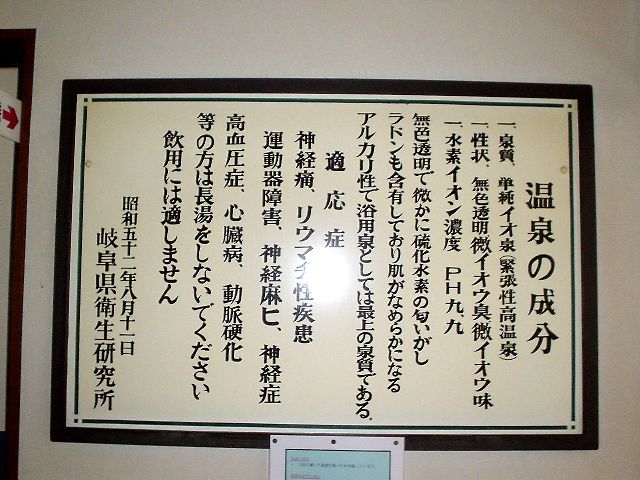 温泉の成分
一、泉質、単純イオ泉(緊張性高温泉)
一、性状、無色透明微イオウ臭微イオウ味
一、水素イオン濃度 PH九、九
無色透明で微かに硫化水素の匂いがし
ラドンも含有しており肌がなめらかになる
アルカリ性で浴用泉としては最上の泉質である。
適応症
神経痛、リウマチ性疾患
運動器障害、神経麻ヒ、神経症
高血圧症、心臓病、動脈硬化
等の方は長湯をしないでください
飲用には適しません
昭和五十二年八月十一日
岐阜県衛生研究所